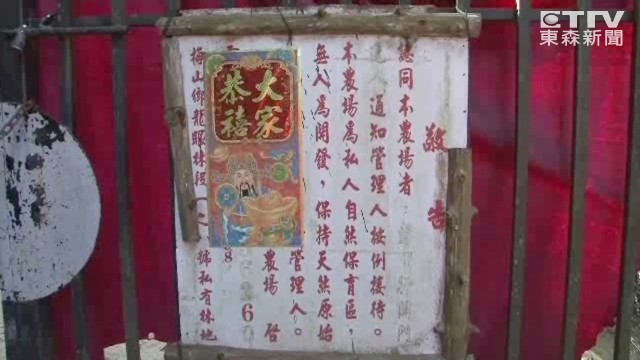 ETtv
東森新聞
敬告
認同本農場者
通知管理人按例接待。
本農場為私人自然保育區,
無人為開發,保持天然原始
管理人。
農場 啓
260
8
梅山鄉龍眼林段
號私有林地
大家恭禧